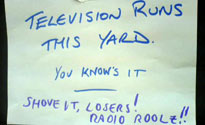 TELEVISION RUNS
THIS YARD.
YOU KNOW'S IT
SHOVE IT, LOSERS!
RADIO ROOLZ!!